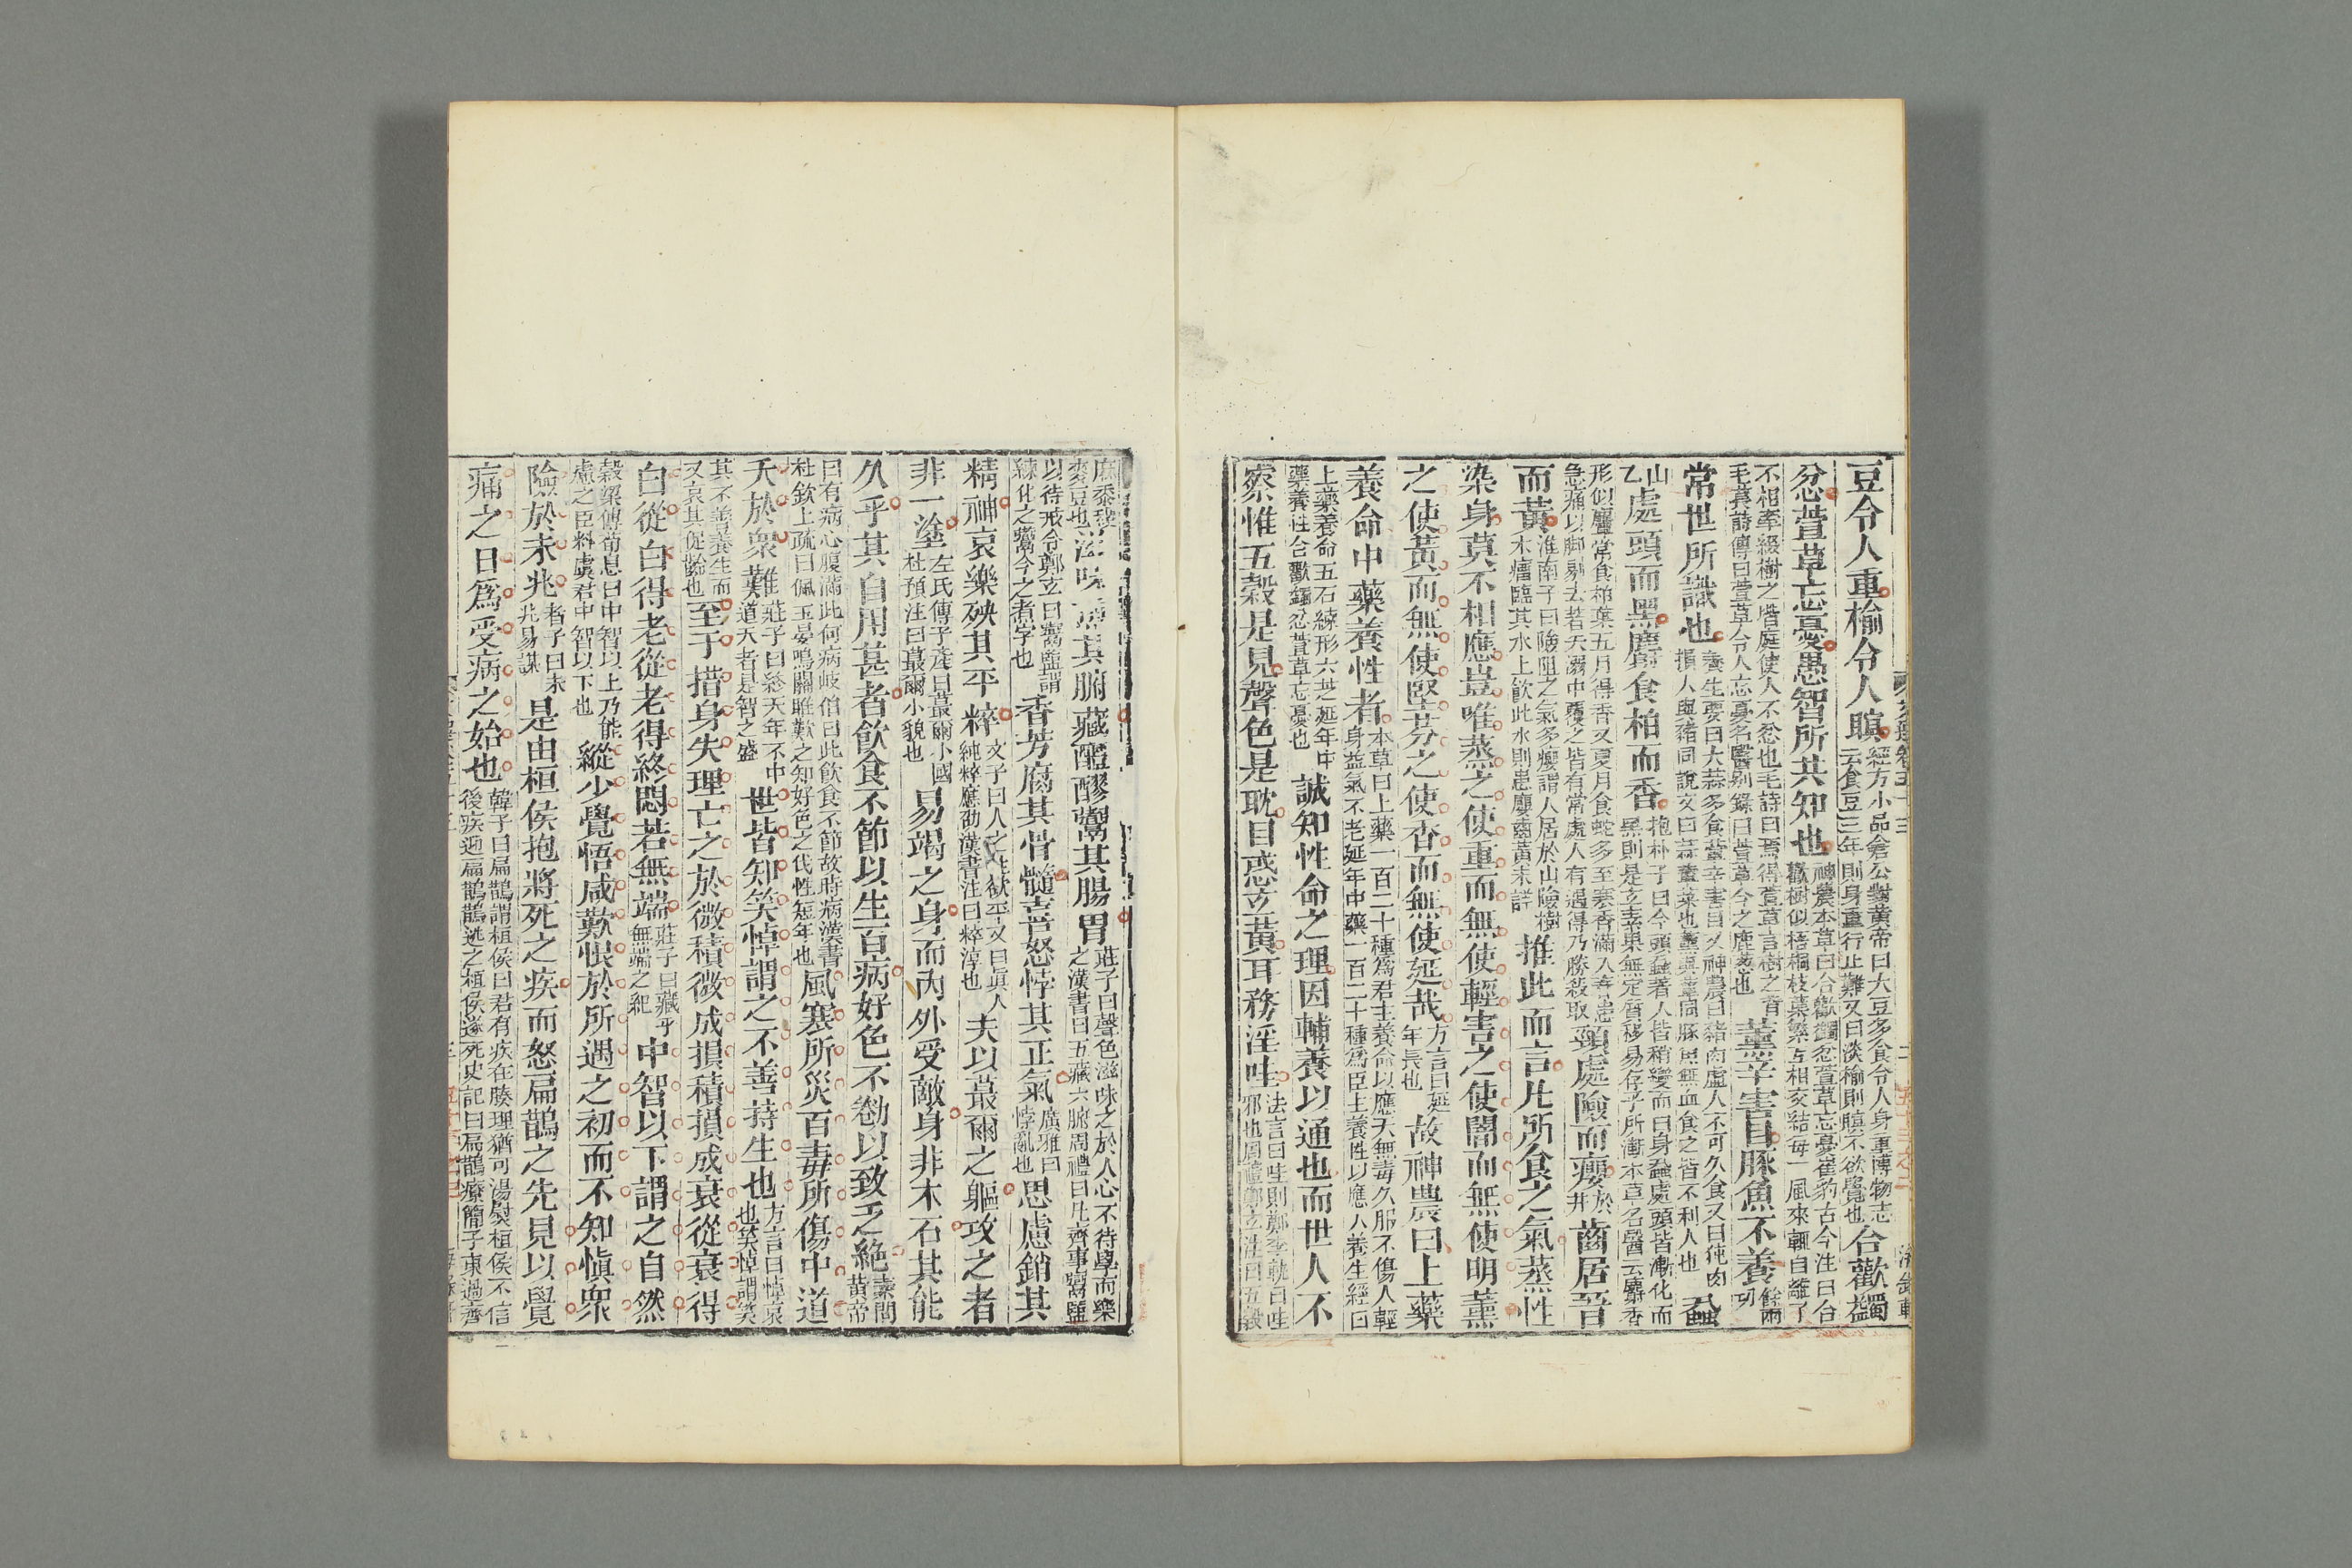 豆令人重榆令人瞑經方小品倉公對黃帝曰大豆多食令人身重博物志云食豆三年則身重行止難又曰淡榆則瞑不欲覺也合歡蠲
忿萱草忘憂愚智所共知也神農本草曰合歡蠲忿萱草忘憂崔豹古今注曰合歡樹似梧桐枝葉繁互相交結每一風來輒自離了
不相牽綴樹之堦庭使人不忿也毛詩曰焉得萱草言樹之背毛萇詩傳曰萱草令人忘憂名醫別錄曰萱草今之鹿葱也薰辛害目豚魚不養
常世所識也養生要曰大蒜多食葷辛害目又神農曰豬肉虛人不可久食又曰狍肉損人與豬同說文曰蒜葷菜也薰與葷同豚魚無血食之皆不利人也蝨
處頭而黑麝食柏而香抱朴子曰今頭蝨著人皆稍變而曰身蝨處頭皆漸化而黑則是玄素果無定質移易存乎所漸本草名醫云麝香
形似麞常食柏葉五月得香又夏月食蛇多至寒香滿入春患急痛以脚剔去若夭溺中覆之皆有常處人有遇得乃勝殺取頸處險而癭齒居晉
而黃淮南子曰險阻之氣多癭謂人居於山險樹木瘤臨其水上飲此水則患癭齒黃未詳推此而言凡所食之氣蒸性
染身莫不相應豈唯蒸之使重而無使輕害之使闇而無使明薰
之使黃而無使堅芬之使香而無使延哉方言曰延年長也故神農曰上藥
養命中藥養性者本草曰上藥一百二十種爲君主養命以應天無毒久服不傷人輕身益氣不老延年中藥一百二十種爲臣主養性以應人養生經曰
上藥養命五石練形六芝延年中藥養性合歡蠲忿萱草忘憂也誠知性命之理因輔養以通也而世人不
察惟五穀是見聲色是耽目惑玄黃耳務淫哇法言曰哇則鄭李軌曰哇邪也周禮鄭玄注曰五穀
麻黍稷麥豆也滋味煎其腑藏醴醪鬻其腸胃莊子曰聲色滋味之於人心不待學而樂之漢書曰五藏六腑周禮曰凡齊事鬻盬
以待戒令鄭玄曰鬻盬謂練化之鬻今之煮字也香芳腐其骨髓喜怒悖其正氣廣雅曰悖亂也思慮銷其
精神哀樂殃其平粹文子曰人之性欲平又曰眞人純粹應劭漢書注曰粹淳也夫以蕞爾之軀攻之者
非一塗左氏傳子產曰蕞爾小國杜預注曰蕞爾小貌也易竭之身而內外受敵身非木石其能
久乎其自用甚者飲食不節以生百病好色不勌以致乏絶素問黃帝
曰有病心腹滿此何病岐伯曰此飲食不節故時病漢書杜欽上疏曰佩玉晏鳴關雎歎之知好色之伐性短年也風寒所災百毒所傷中道
夭於衆難莊子曰終天年不中道夭者是智之盛世皆知笑悼謂之不善持生也方言曰悼哀也笑悼謂笑
其不善養生而又哀其促齡也至于措身失理亡之於微積微成損積損成衰從衰得
白從白得老從老得終悶若無端莊子曰藏乎無端之紀中智以下謂之自然
穀梁傳荀息曰中智以上乃能慮之臣料虞君中智以下也縱少覺悟咸歎恨於所遇之初而不知愼衆
險於未兆老子曰未兆易謀是由桓侯抱將死之疾而怒扁鵲之先見以覺
痛之日爲受病之始也韓子曰扁鵲謂桓侯曰君有疾在腠理猶可湯熨桓侯不信後疾迎扁鵲鵲逃之桓侯遂死史記曰扁鵲療簡子東過齊